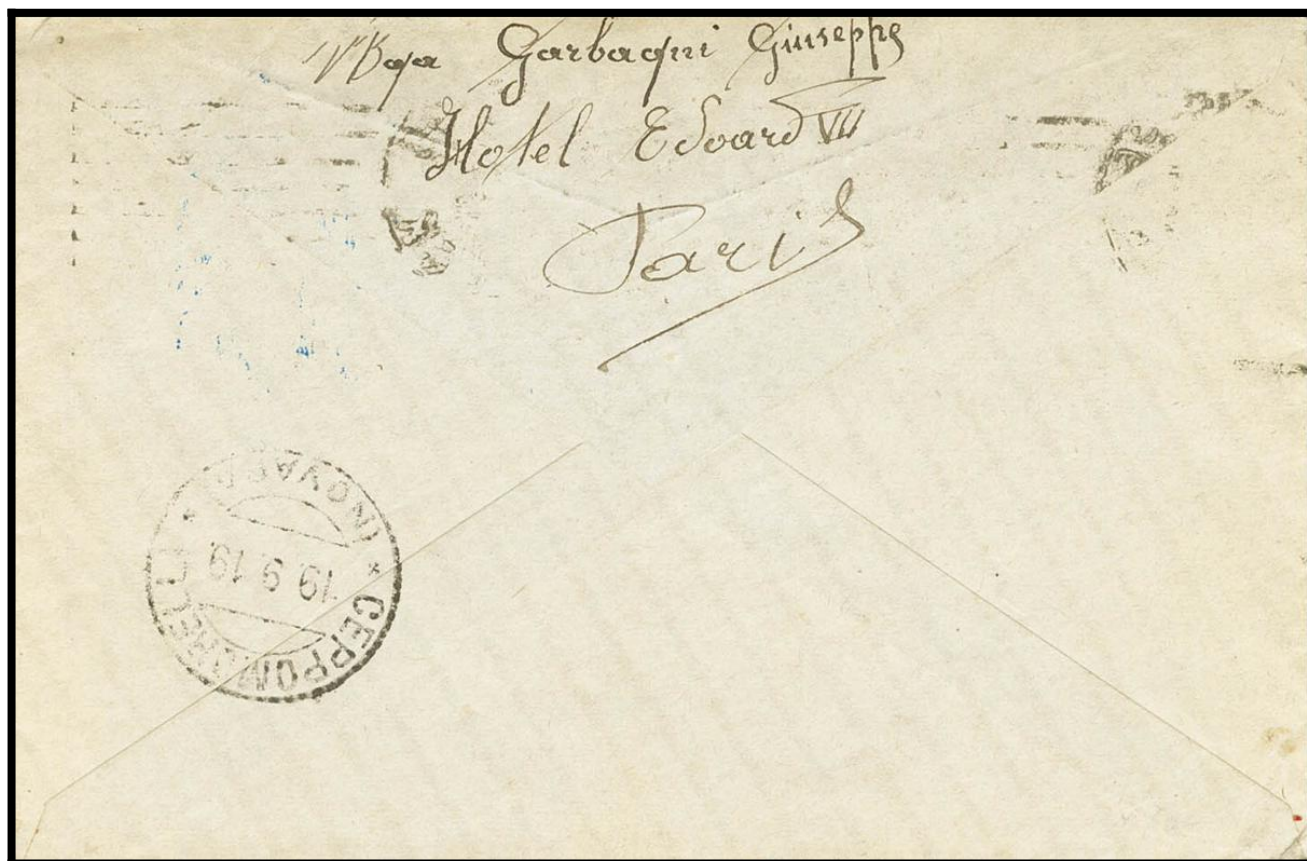 Garbagni Giuseppe
Hotel Edoard VII
Paris
CEPPOMORELLI
19.9.19